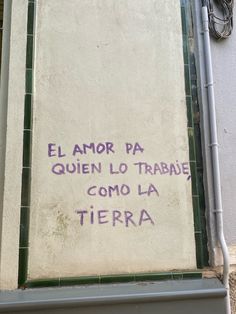 EL AMOR PA
QUIEN LO TRABAJE,
COMO LA
TIERRA